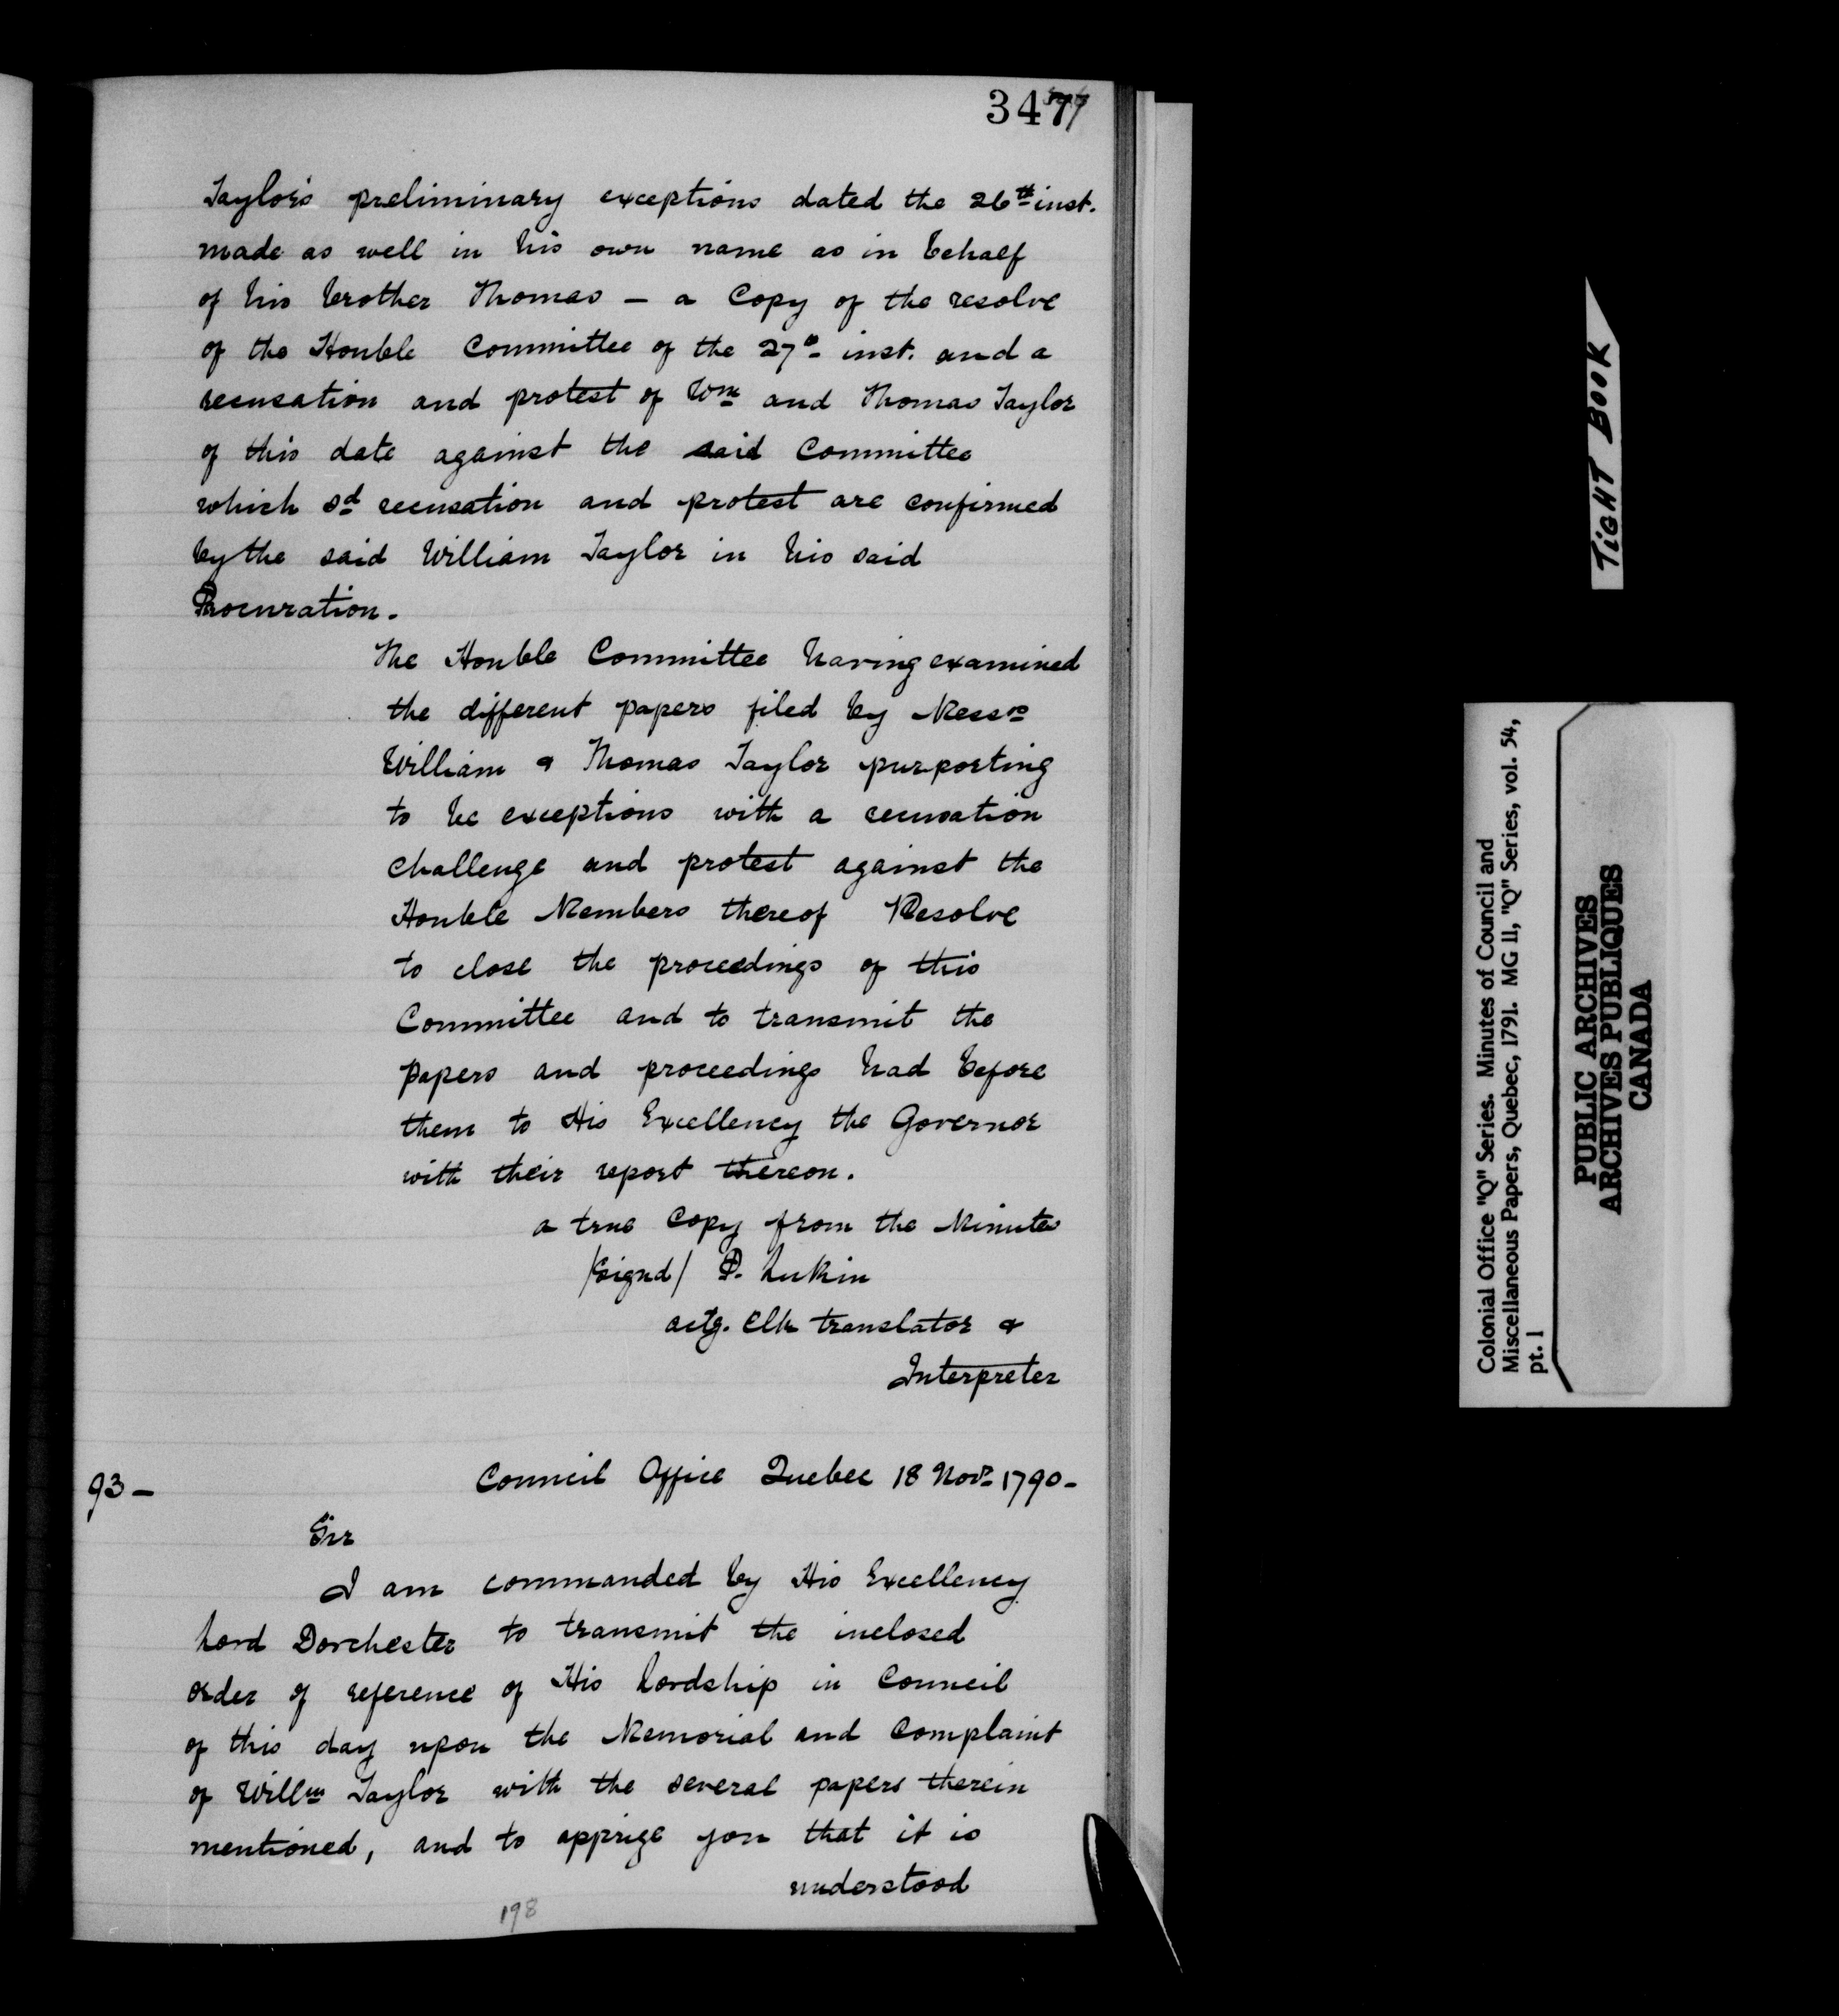 347
Taylor's preliminary exceptions dated the 26th inst.
made as well in his own name as in behalf
of his brother Thomas — a Copy of the resolve
of the Honble Committee of the 27o inst. and a
recusation and protest of Wm and Thomas Taylor
of this date against the said Committee
which sd recusation and protest are confirmed
by the said William Taylor in his said
Procuration.
The Honble Committee having examined
the different papers filed by Messrs
William & Thomas Taylor purporting
to be exceptions with a recusation
challenge and protest against the
Honble Members thereof Resolve
to close the proceedings of this
Committee and to transmit the
papers and proceedings had before
them to His Excellency the Governor
with their report thereon.
a true Copy from the Minutes
/Signd/ P. Lukin
actg. Clk translator &
Interpreter
93 — Council Office Quebec 18 Novr 1790 -
Sir
I am commanded by His Excellency
Lord Dorchester to transmit the inclosed
order of reference of His Lordship in Council
of this day upon the Memorial and Complaint
of Willm Taylor with the several papers therein
mentioned, and to apprize you that it is
understood
198
TIGHT BOOK
Colonial Office "Q" Series. Minutes of Council and
Miscellaneous Papers, Quebec, 1791. MG 11, "Q" Series, vol. 54,
pt. 1
PUBLIC ARCHIVES
ARCHIVES PUBLIQUES
CANADA